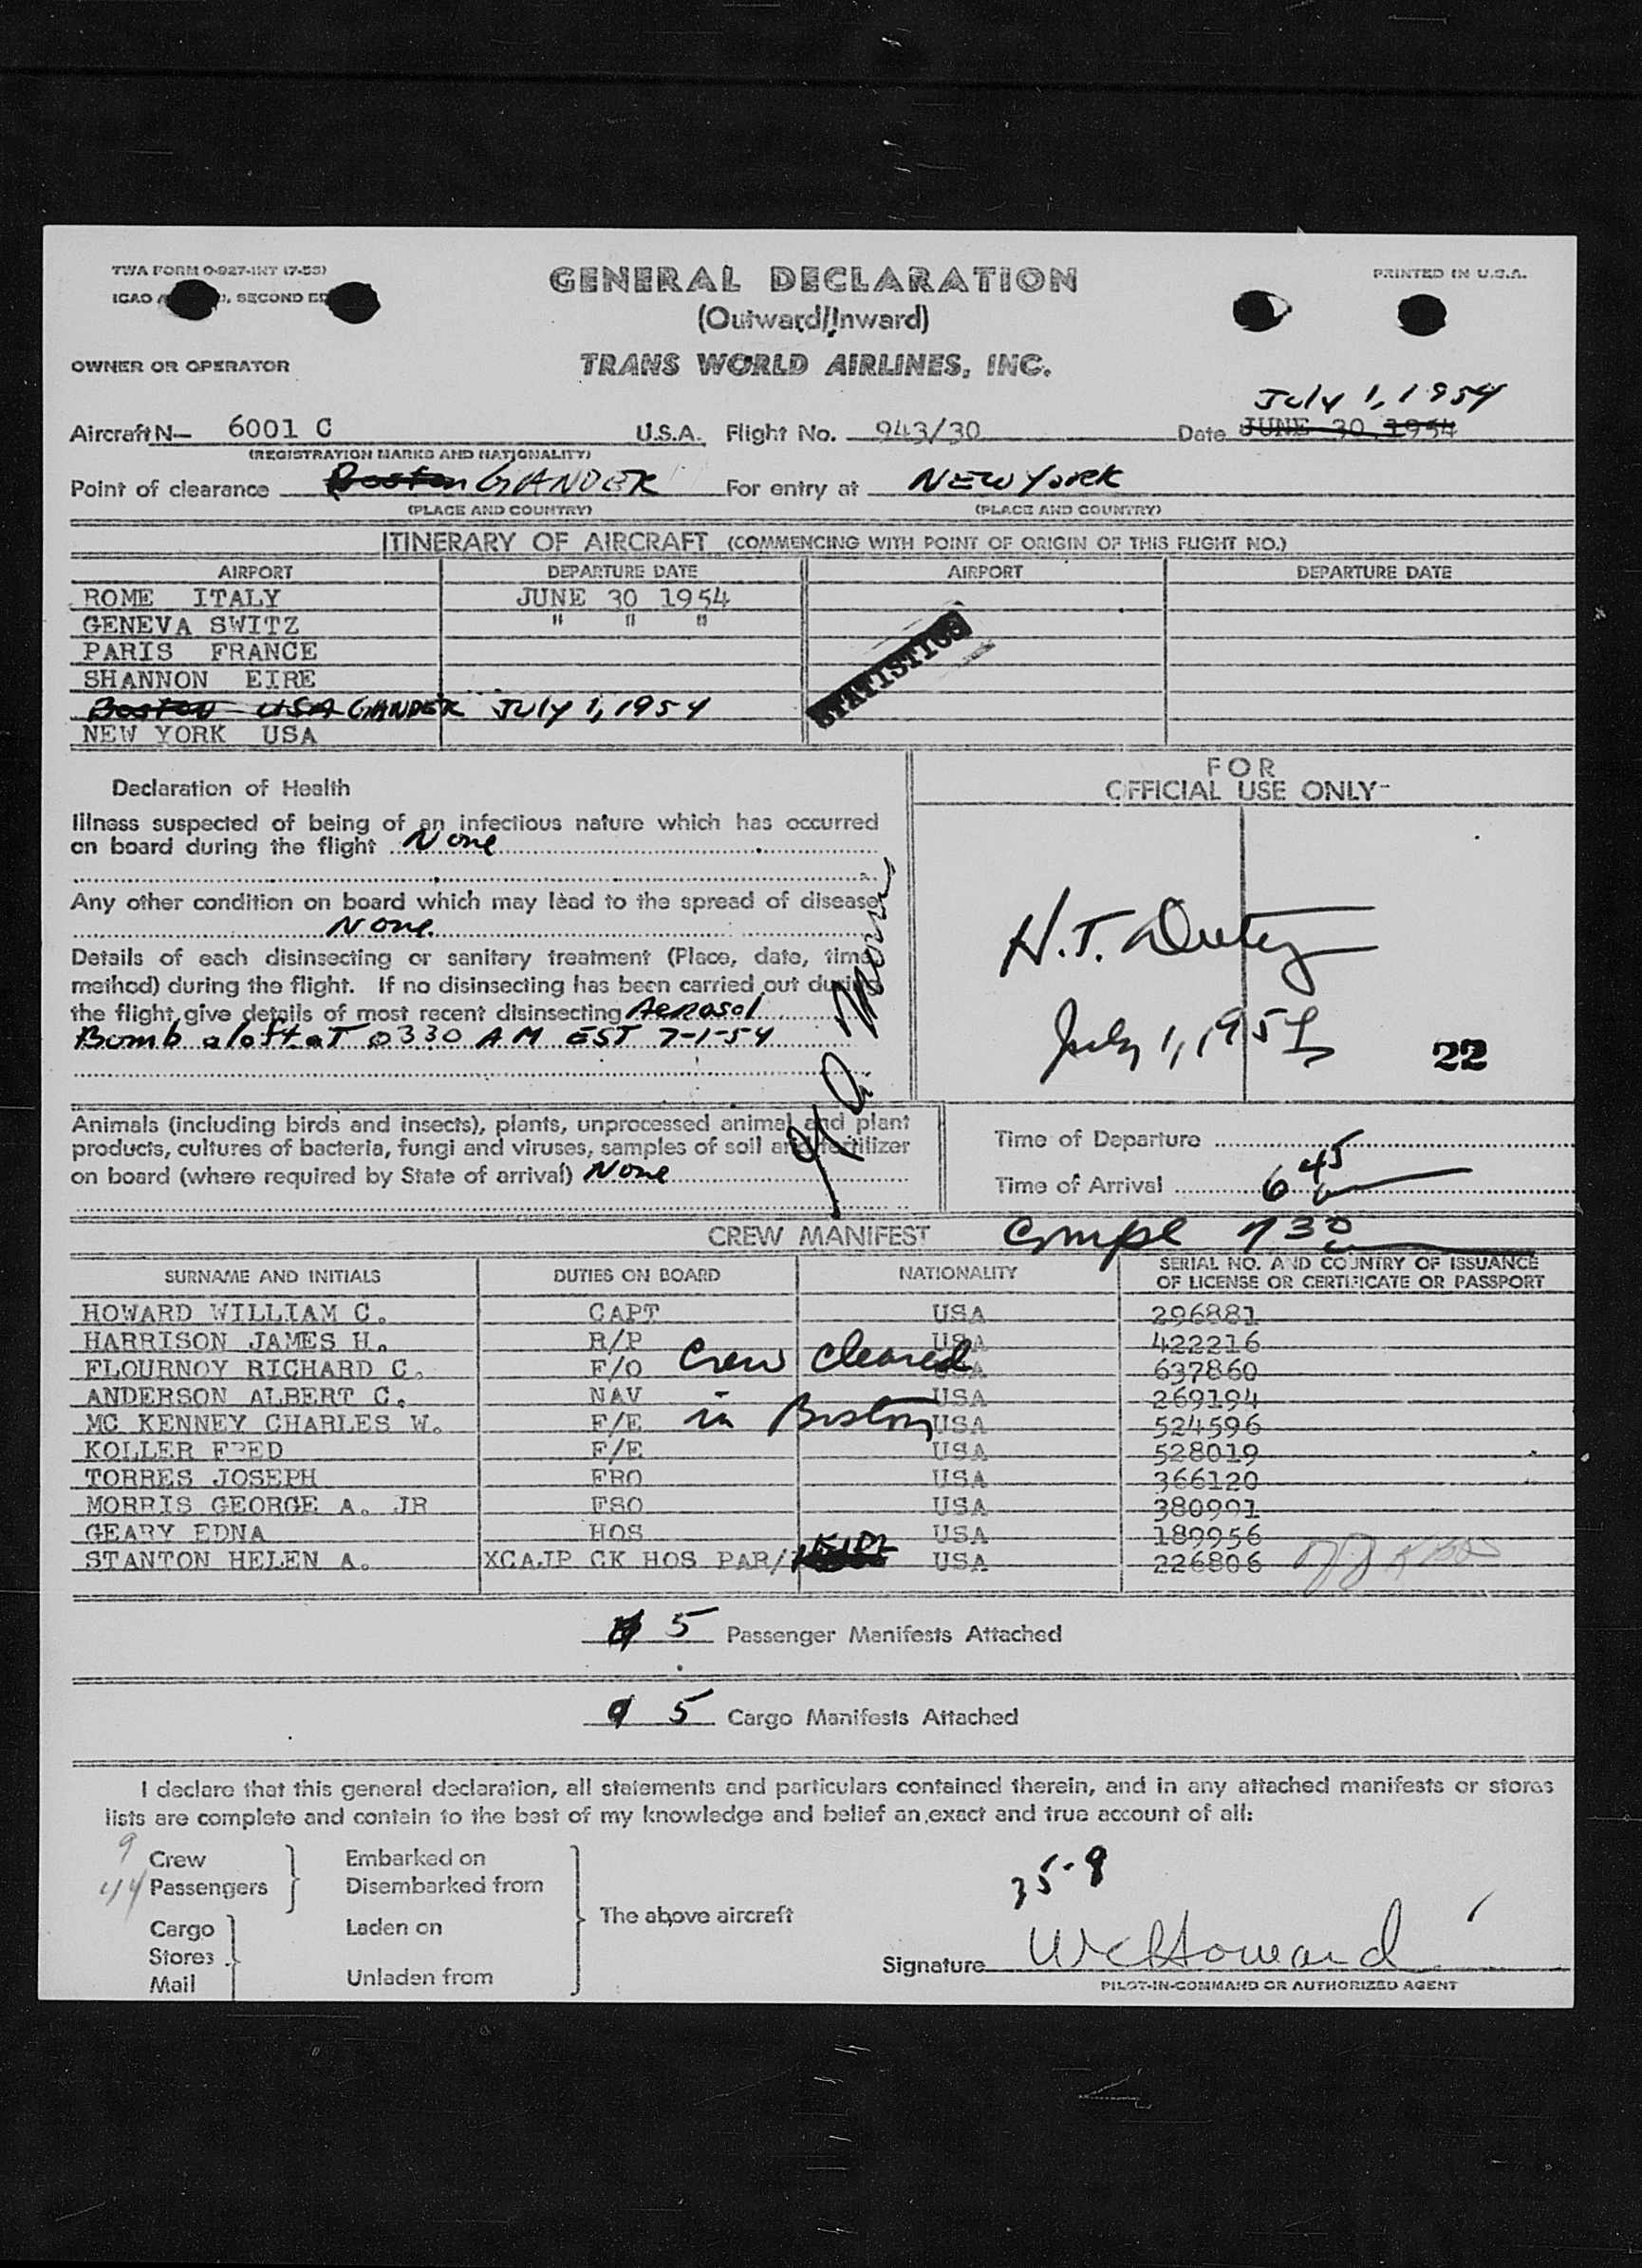 TWA FORM O-927-INT (7-53)
PRINTED IN U.S.A.
ICAO SECOND
GENERAL DECLARATION
(Outward/Inward)
OWNER OR OPERATOR
TRANS WORLD AIRLINES, INC.
July 1, 1954
Aircraft N— 6001 C U.S.A. Flight No. 943/30 Date JUNE 30 1954
(REGISTRATION MARKS AND NATIONALITY)
Point of clearance Boston GANDER For entry at NEW YORK
(PLACE AND COUNTRY) (PLACE AND COUNTRY)
ITINERARY OF AIRCRAFT (COMMENCING WITH POINT OF ORIGIN OF THIS FLIGHT NO.)
AIRPORT DEPARTURE DATE AIRPORT DEPARTURE DATE
ROME ITALY JUNE 30 1954
GENEVA SWITZ " " "
PARIS FRANCE
SHANNON EIRE
Boston USA GANDER JULY 1, 1954
NEW YORK USA
STATISTICS
Declaration of Health
Illness suspected of being of an infectious nature which has occurred
on board during the flight None
Any other condition on board which may lead to the spread of disease
None
Details of each disinsecting or sanitary treatment (Place, date, time
method) during the flight. If no disinsecting has been carried out during
the flight give details of most recent disinsecting Aerosol
Bomb aloft at 0330 AM EST 7-1-54
FOR
OFFICIAL USE ONLY
H.T.
July 1, 1954
22
Animals (including birds and insects), plants, unprocessed animal and plant
products, cultures of bacteria, fungi and viruses, samples of soil and fertilizer
on board (where required by State of arrival) None
Time of Departure
Time of Arrival 6 45
CREW MANIFEST
730
SURNAME AND INITIALS DUTIES ON BOARD NATIONALITY SERIAL NO. AND COUNTRY OF ISSUANCE
OF LICENSE OR CERTIFICATE OR PASSPORT
HOWARD WILLIAM C. CAPT USA 296881
HARRISON JAMES H. R/P USA 422216
FLOURNOY RICHARD C. F/O USA 637860
ANDERSON ALBERT C. NAV USA 269194
MC KENNEY CHARLES W. F/E USA 524596
KOLLER FRED F/E USA 528019
TORRES JOSEPH FRO USA 366120
MORRIS GEORGE A. JR FSO USA 380991
GEARY EDNA HOS USA 189956
STANTON HELEN A. XCAJP CK HOS PAR/ USA 226806
Crew cleared
in Boston
5 Passenger Manifests Attached
5 Cargo Manifests Attached
I declare that this general declaration, all statements and particulars contained therein, and in any attached manifests or stores
lists are complete and contain to the best of my knowledge and belief an exact and true account of all:
9 Crew
44 Passengers
Embarked on
Disembarked from
Cargo
Stores
Mail
Laden on
Unladen from
The above aircraft
35-9
Signature WCHoward
PILOT-IN-COMMAND OR AUTHORIZED AGENT